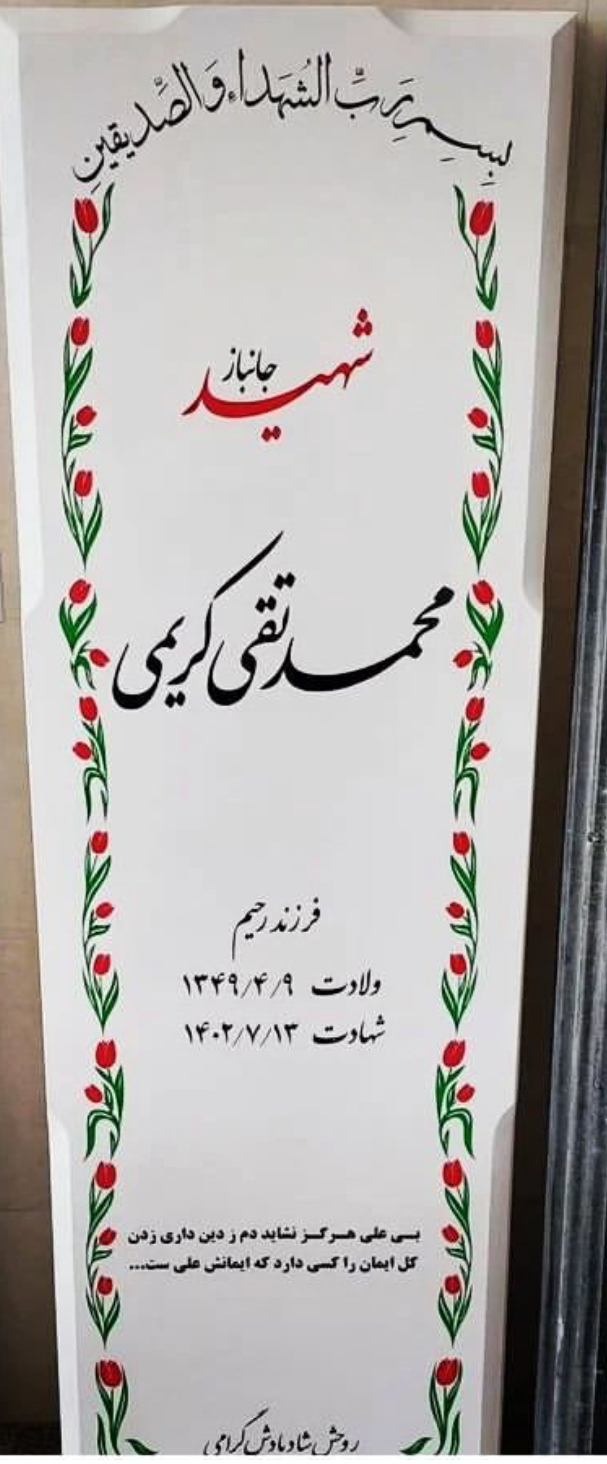 بِسمِ رَبِّ الشُهَداءِ وَالصِّدیقینِ
شهید
جانباز
محمد تقی کریمی
فرزند رحیم
ولادت ۱۳۴۹/۴/۹
شهادت ۱۴۰۲/۷/۱۳
بـی علی هـرگـز نشاید دم ز دین داری زدن
کل ایمان را کسی دارد که ایمانش علی ست...
روحش شاد یادش گرامی